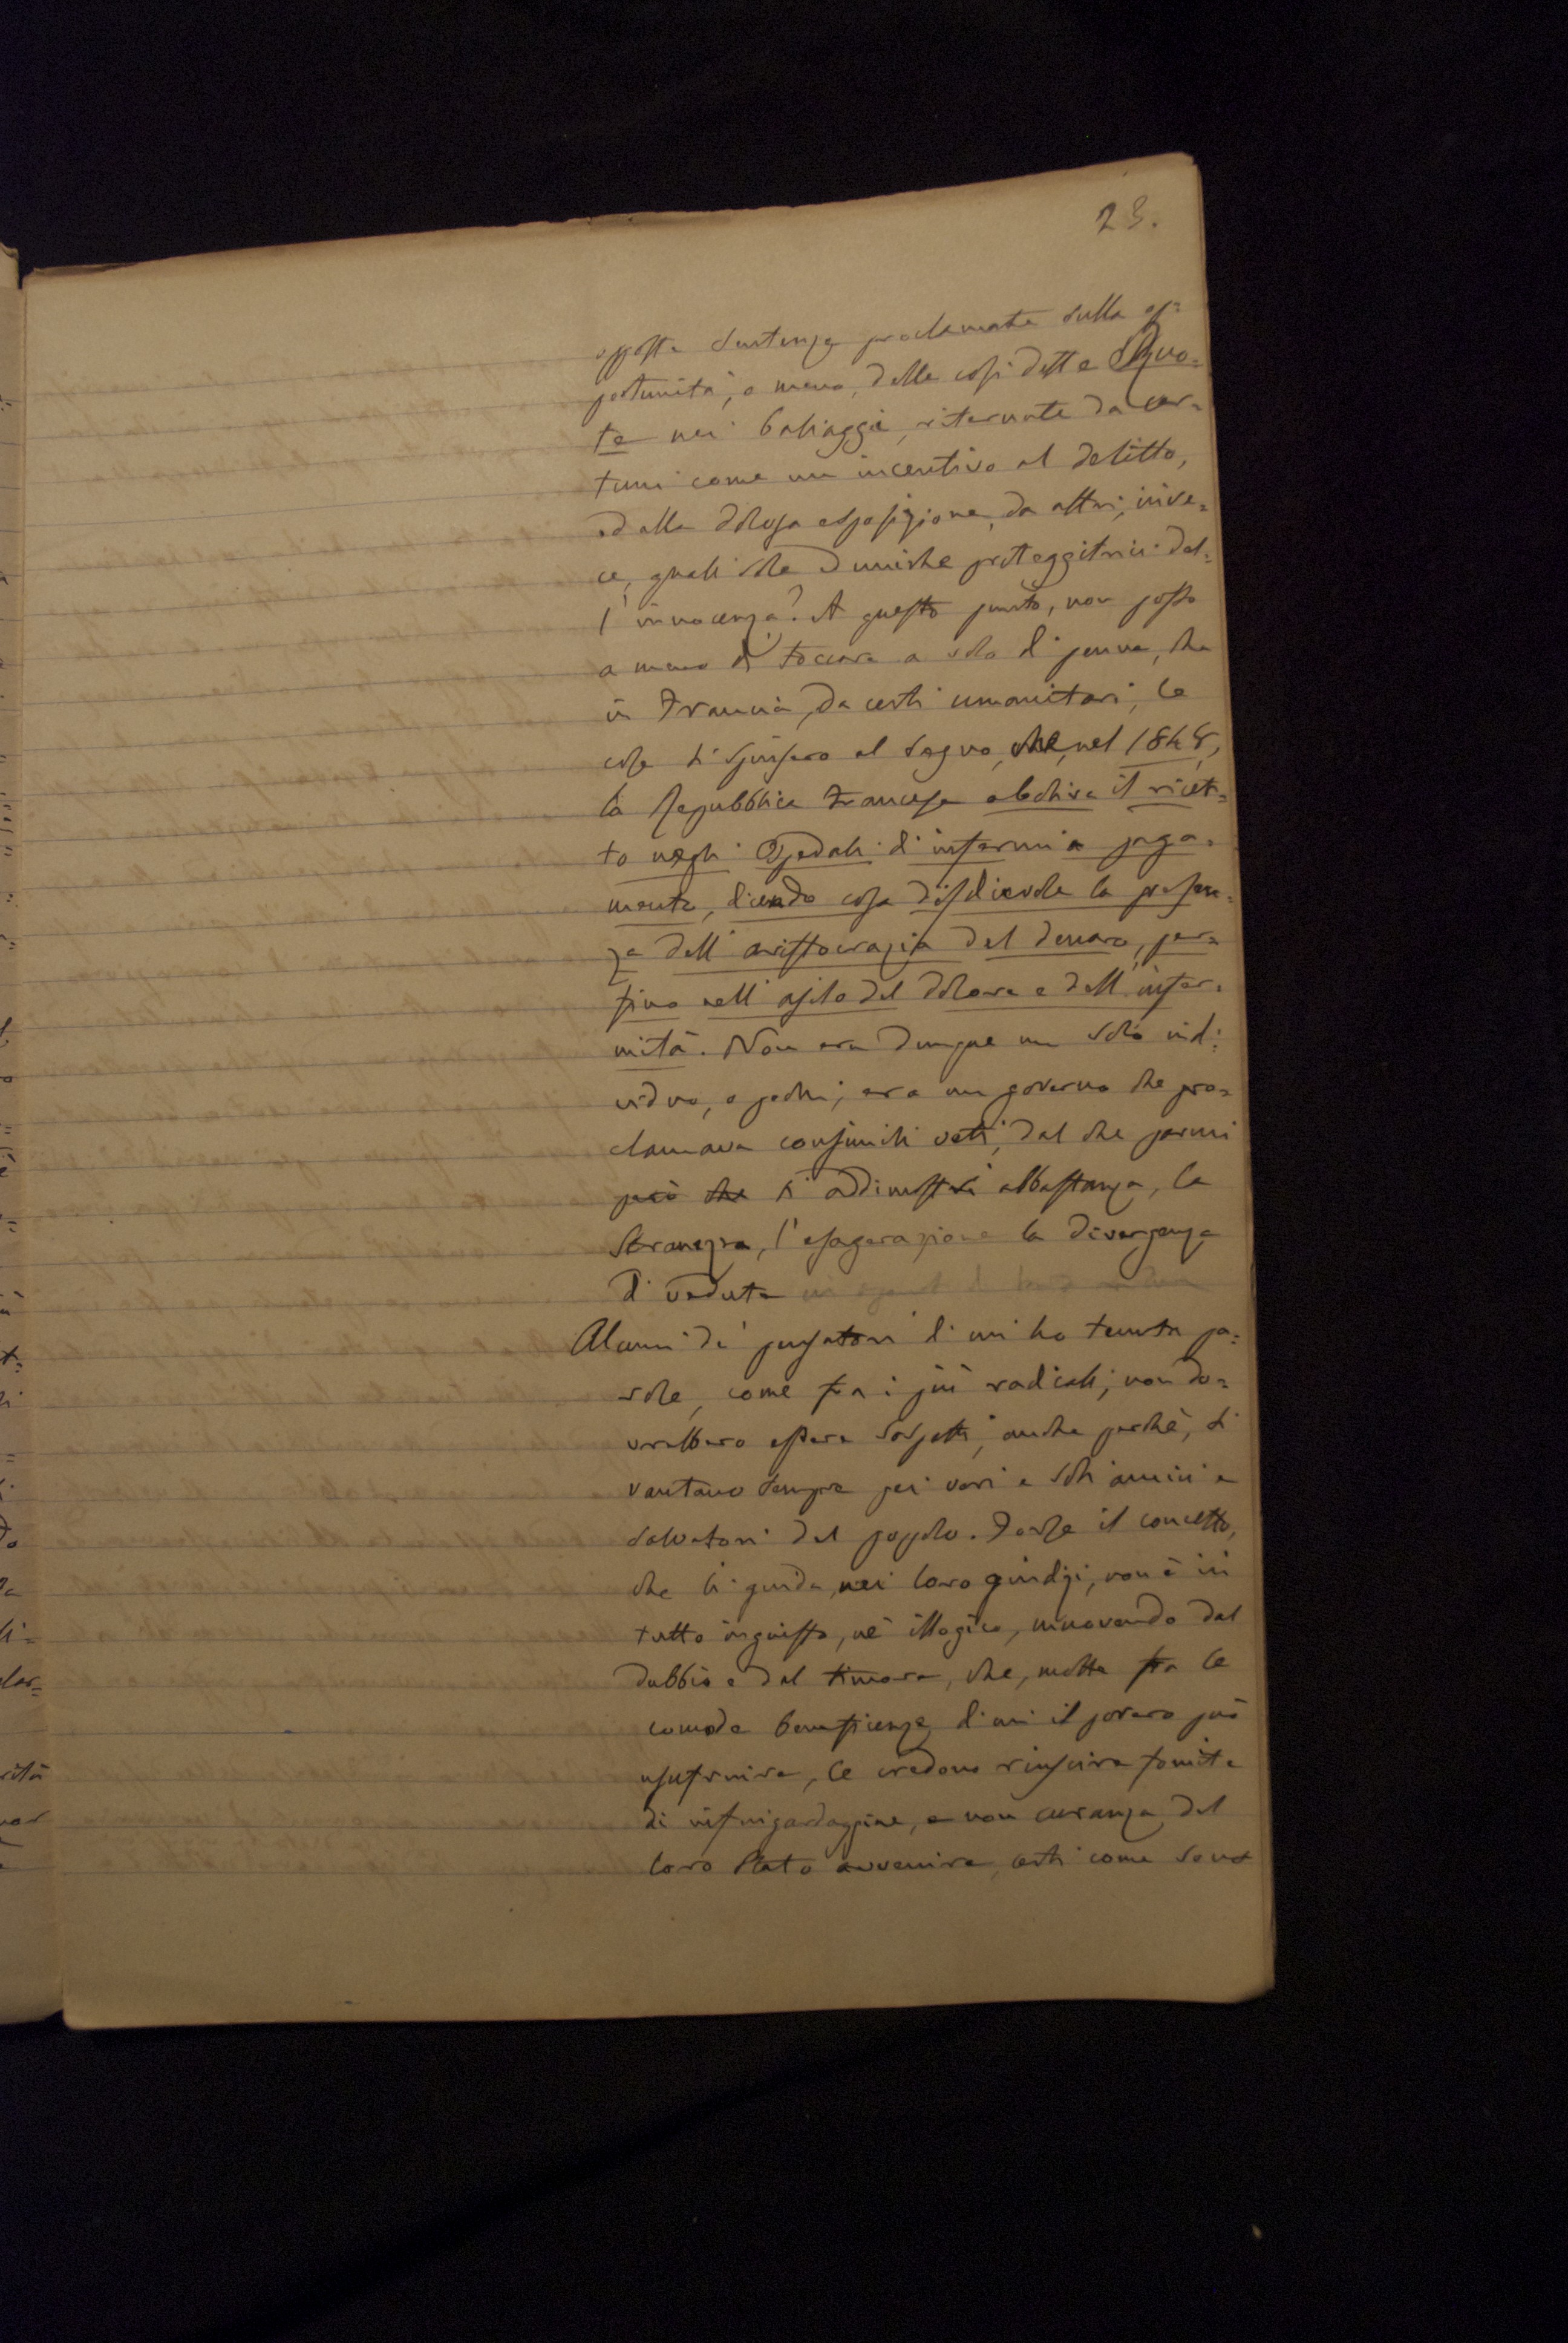 23.
opposte sentenze proclamate sulla op=
portunità, o meno, delle così dette Ruo=
te nei baliaggi, ritenute da cer=
tuni come un incentivo al delitto,
ed alla dolosa esposizione, da altri, inve=
ce, quali sole ed uniche proteggitrici del=
l'innocenza? A questo punto, non posso
a meno di toccare a volo di penna, che
in Francia, da certi umanitari, le
cose si spinsero al segno, che, nel 1848,
la Repubblica Francese aboliva il ricet=
to negli Ospedali di infermi a paga=
mento, dicendo cosa disdicevole la presen=
za dell'aristocrazia del denaro, per=
fino nell'asilo del dolore e dell'infer=
mità. Non era dunque un solo indi=
viduo, o pochi; era un governo che pro=
clamava consimili voti; dal che parmi
però che si addimostri abbastanza, la
stranezza, l'esagerazione la divergenza
di vedute
Alcuni de' pensatori di cui ho tenuta pa=
role, come fra i più radicali, non do=
vrebbero essere sospetti, anche perchè, si
vantano sempre pei veri e soli amici e
salvatori del popolo. Forse il concetto,
che li guida, nei loro giudizi, non è in
tutto ingiusto, nè illogico, muovendo dal
dubbio e dal timore, che, molte fra le
comode beneficenze di cui il povero può
usufruire, le credono riuscire fomite
di infingardaggine, e non curanza del
loro stato avvenire, certi come sono